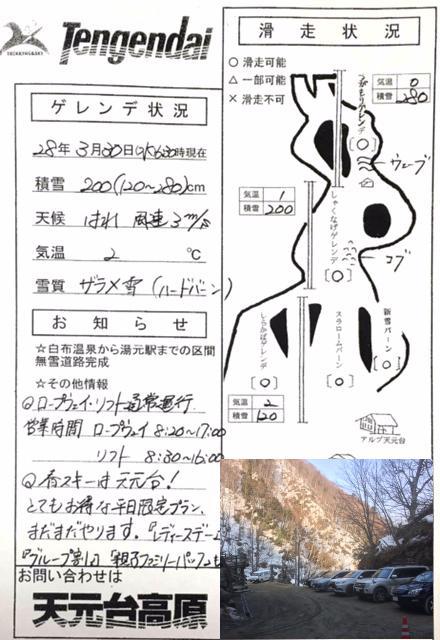 TREKKING&SKI
Tengendai
ゲレンデ状況
28年3月30日(水)6:30時現在
積雪 200(120~280)cm
天候 はれ 風速3m/s
気温 2 ℃
雪質 ザラメ雪(ハードバーン)
お知らせ
☆白布温泉から湯元駅までの区間
無雪道路完成
☆その他情報
◎ロープウェイ・リフト通常運行
営業時間 ロープウェイ 8:20~17:00
リフト 8:30~16:00
◎春スキーは天元台!
とてもお得な平日限定プラン、
まだまだやります。『レディースデー
『グループ割』『親子ファミリーパック』も
お問い合わせは
天元台高原
滑走状況
○ 滑走可能
△ 一部可能
× 滑走不可
気温 0
積雪 280
つがもりゲレンデ
[○]
ウェーブ
気温 1
積雪 200
しゃくなげゲレンデ
[○]
コブ
しらかばゲレンデ
[○]
スラロームバーン
[○]
新雪バーン
[○]
気温 2
積雪 120
アルブ天元台